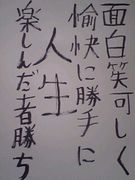 面白笑可しく
愉快に勝手に
人生
楽しんだ者勝ち